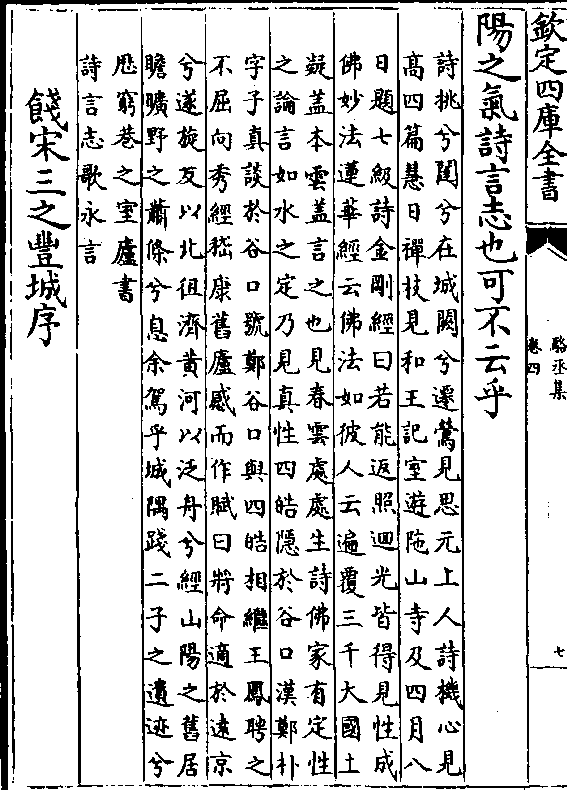 欽定四庫全書
駱丞集
卷四
七
陽之氣詩言志也可不云乎
詩挑兮闥兮在城闕兮遷鶯見思元上人詩機心見
高四篇慧日禪枝見和王記室遊陁山寺及四月八
日題七級詩金剛經曰若能返照迴光皆得見性成
佛妙法蓮華經云佛法如彼人云遍覆三千大國土
疑蓋本雲蓋言之也見春雲處處生詩佛家有定性
之論言如水之定乃見真性四皓隱於谷口漢鄭朴
字子真談於谷口號鄭谷口與四皓相繼王鳳聘之
不屈向秀經嵇康舊廬感而作賦曰將命適於遠京
兮遂旋反以北徂濟黄河以泛舟兮經山陽之舊居
瞻曠野之蕭條兮息余駕乎城隅踐二子之遺迹兮
歴窮巷之室廬書
詩言志歌永言
餞宋三之豐城序